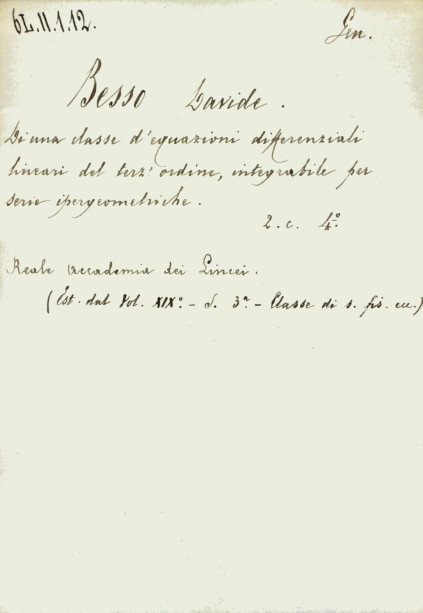 6L.II.1.12.
Gen.
Besso Davide.
Di una classe d'equazioni differenziali
lineari del terz'ordine, integrabile per
serie ipergeometriche.
2. c. 4º.
Reale Accademia dei Lincei.
(Est. dal Vol. XIXº. - S. 3ª. - Classe di s. fis. ecc.)